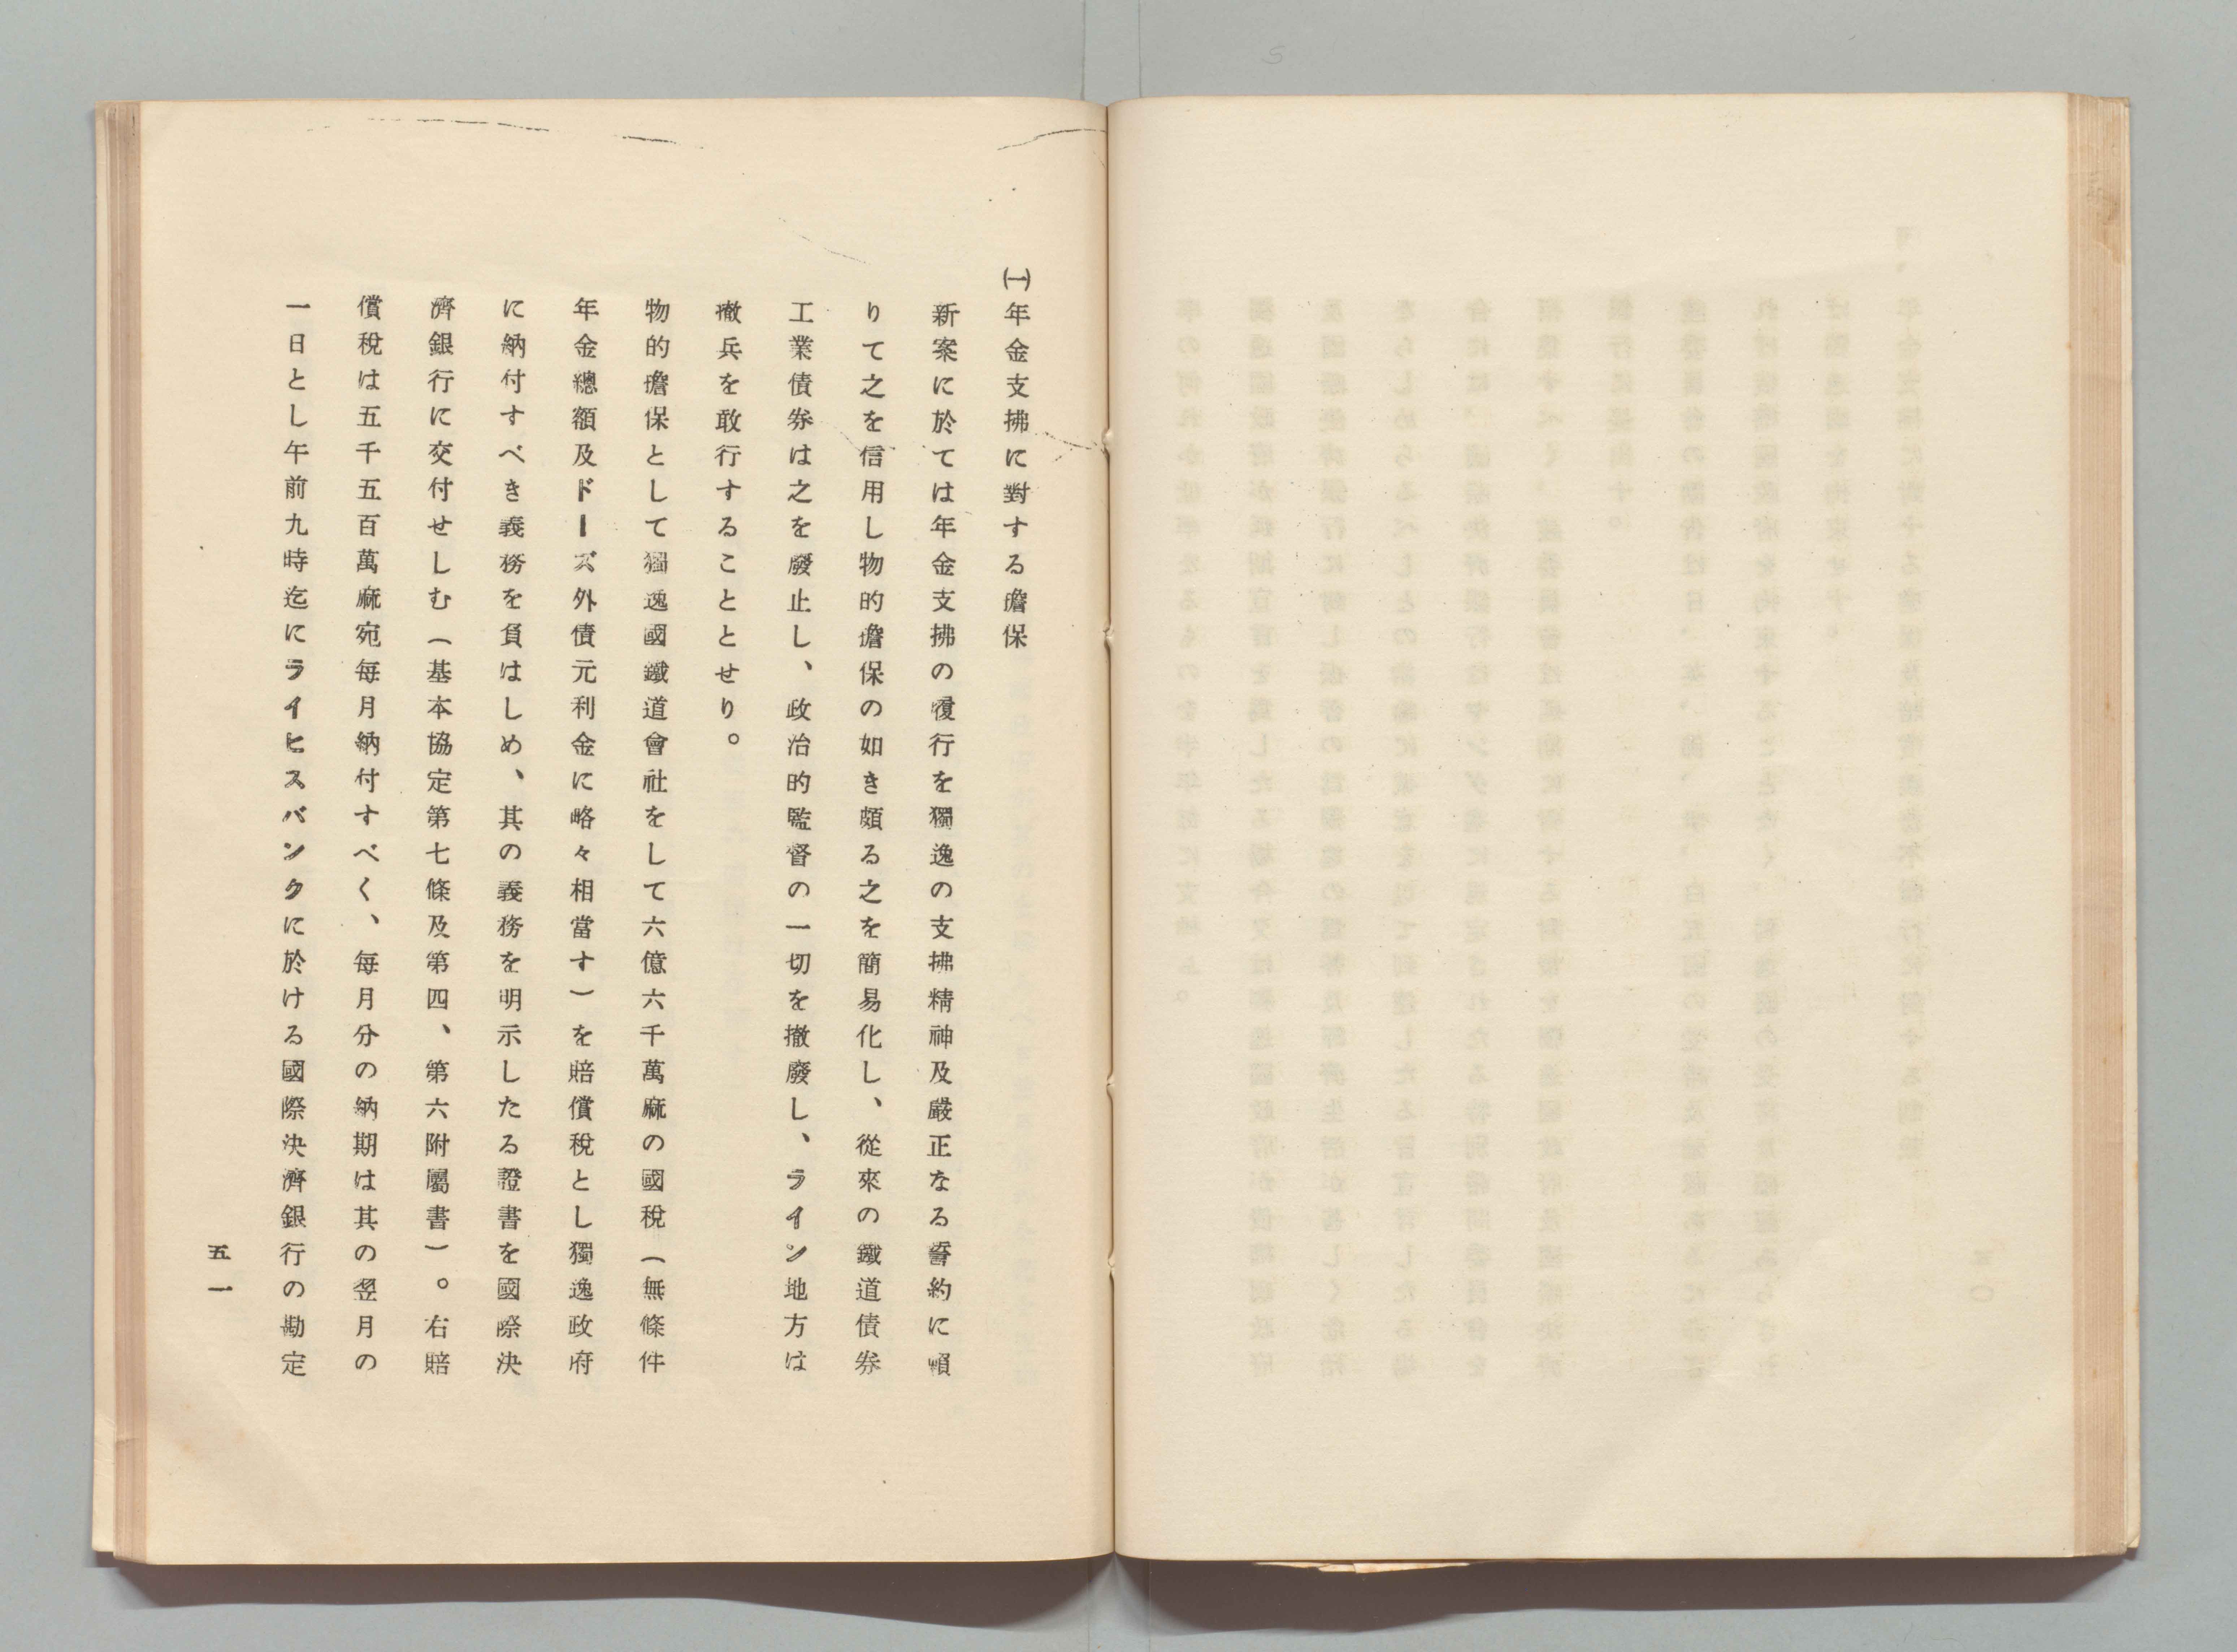 ㈠年金支拂に對する擔保
新案に於ては年金支拂の履行を獨逸の支拂精神及嚴正なる誓約に頼
りて之を信用し物的擔保の如き頗る之を簡易化し、從來の鐵道債券
工業債券は之を廢止し、政治的監督の一切を撤廢し、ライン地方は
撤兵を敢行することとせり。
物的擔保として獨逸國鐵道會社をして六億六千萬麻の國稅（無條件
年金總額及ドーズ外債元利金に略々相當す）を賠償稅とし獨逸政府
に納付すべき義務を負はしめ、其の義務を明示したる證書を國際決
濟銀行に交付せしむ（基本協定第七條及第四、第六附屬書）。右賠
償稅は五千五百萬麻宛每月納付すべく、每月分の納期は其の翌月の
一日とし午前九時迄にライヒスバンクに於ける國際決濟銀行の勘定
五一